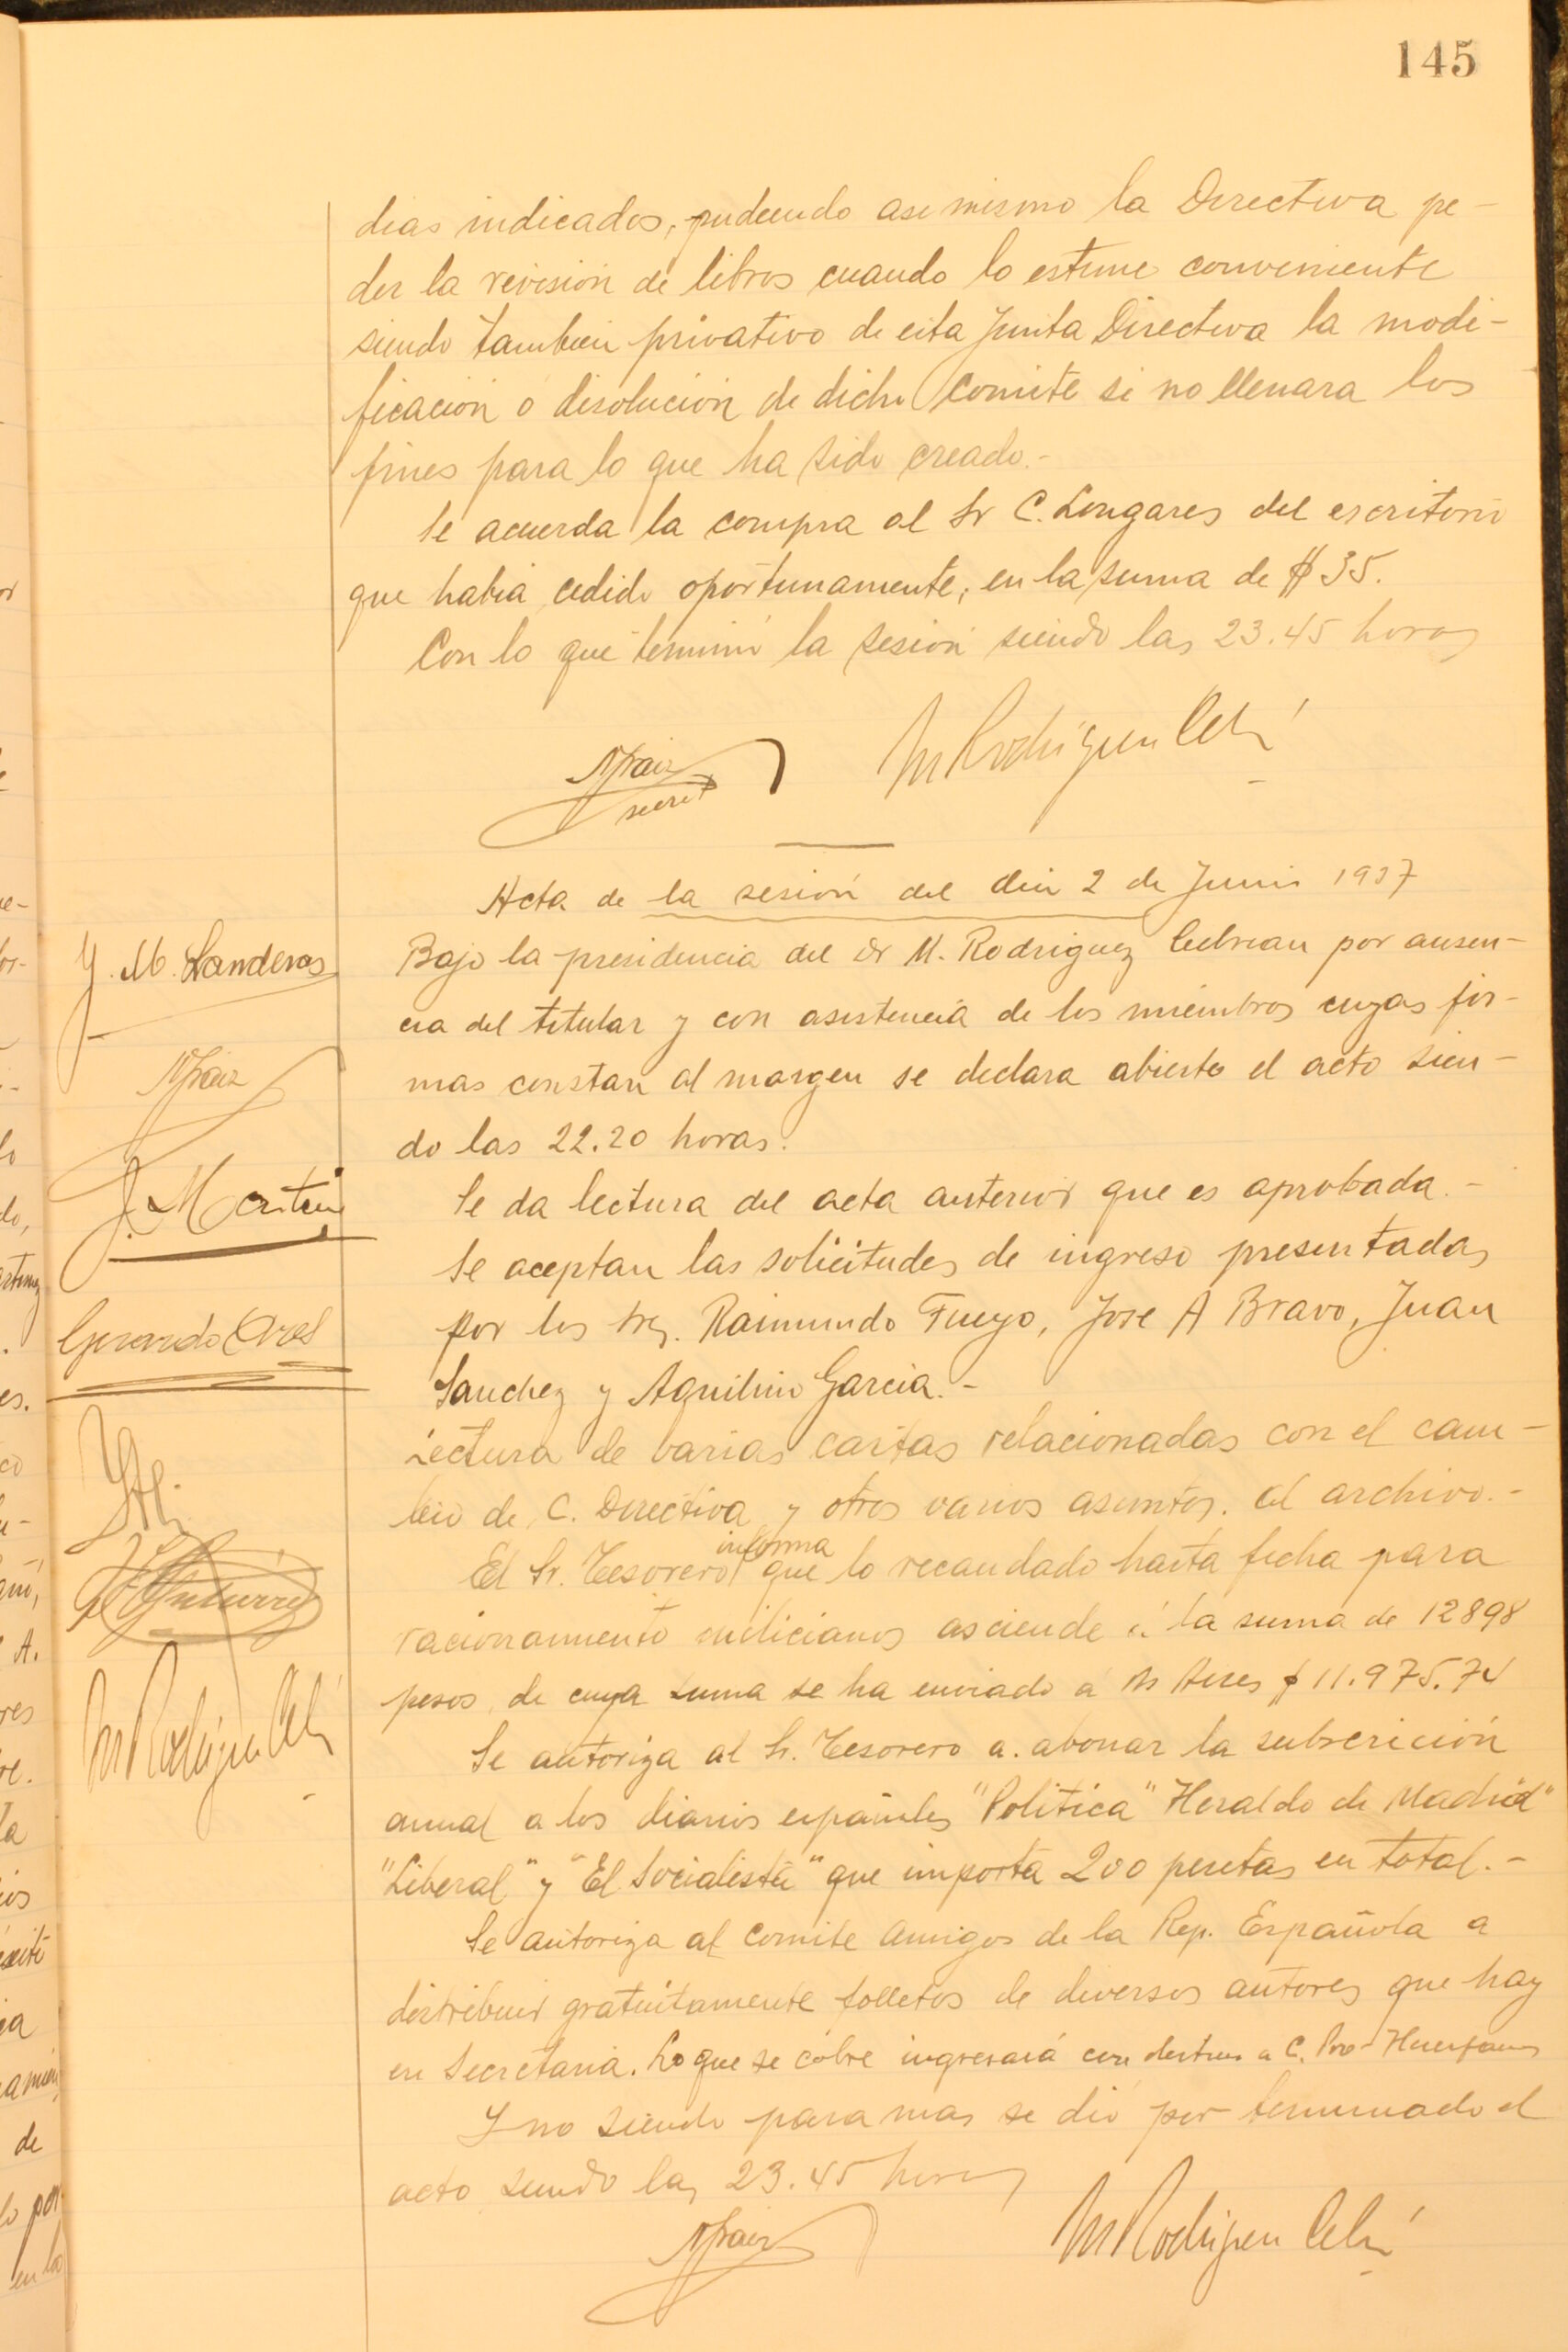 145
dias indicados, pudiendo asi mismo la Directiva pe-
dir la revision de libros cuando lo estime conveniente
siendo tambien privativo de esta Junta Directiva la modi-
ficación o disolución de dicho Comité si no llenara los
fines para lo que ha sido creado.-
Se acuerda la compra al Sr C. Longares del escritorio
que habia cedido oportunamente, en la suma de $ 35.
Con lo que terminó la sesión siendo las 23.45 horas
secret
M Rodriguez Ceb
Acta de la sesión del dia 2 de Junio 1937
Bajo la presidencia del Dr M. Rodriguez Cebrian por ausen-
cia del titular y con asistencia de los miembros cuyas fir-
mas constan al margen se declara abierto el acto sien-
do las 22.20 horas.
Se da lectura del acta anterior que es aprobada.-
Se aceptan las solicitudes de ingreso presentadas
por los Srs. Raimundo Fueyo, Jose A Bravo, Juan
Sanchez y Aquilino Garcia.-
Lectura de varias cartas relacionadas con el cam-
bio de C. Directiva y otros varios asuntos. al archivo.-
El Sr. Tesorero informa que lo recaudado hasta fecha para
racionamiento milicianos asciende á la suma de 12898
pesos, de cuya suma se ha enviado á Bs Aires $ 11.975.74
Se autoriza al Sr. Tesorero a abonar la subscrición
anual a los diarios españoles "Politica" Heraldo de Madrid"
"Liberal" y "El Socialista" que importa 200 pesetas en total.-
Se autoriza al Comite Amigos de la Rep. Española a
distribuir gratuitamente folletos de diversos autores que hay
en Secretaria. Lo que se cobre ingresará con destino a C. Pro-Huerfanos
Y no siendo para mas se dió por terminado el
acto siendo las 23.45 horas
M Rodriguez Ceb
Y. M. Landeras
J. Martin
Gerardo
M Rodriguez Ceb